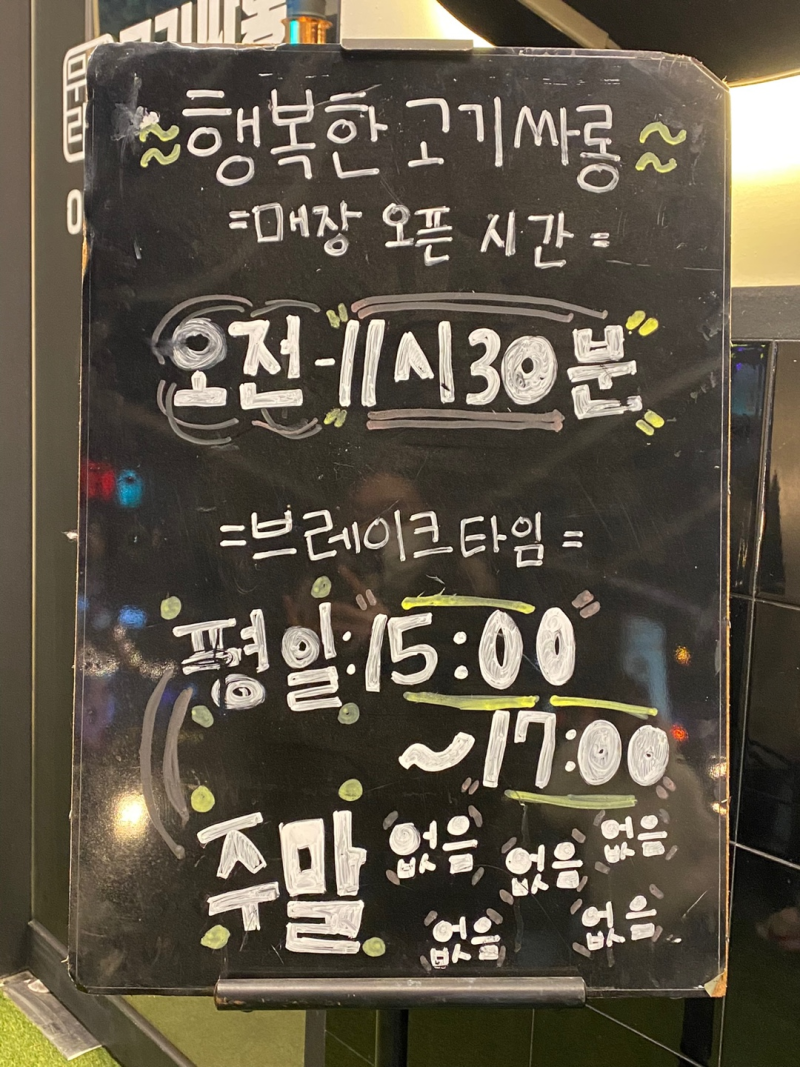 ~ 행복한 고기싸롱 ~
=매장 오픈 시간=
오전-11시30분
=브레이크타임=
평일:15:00
~17:00
주말 없음 없음 없음
없음 없음